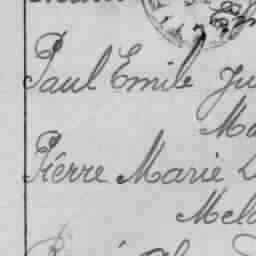 Paul Emile Ju
Ma
Pierre Marie L
Melo